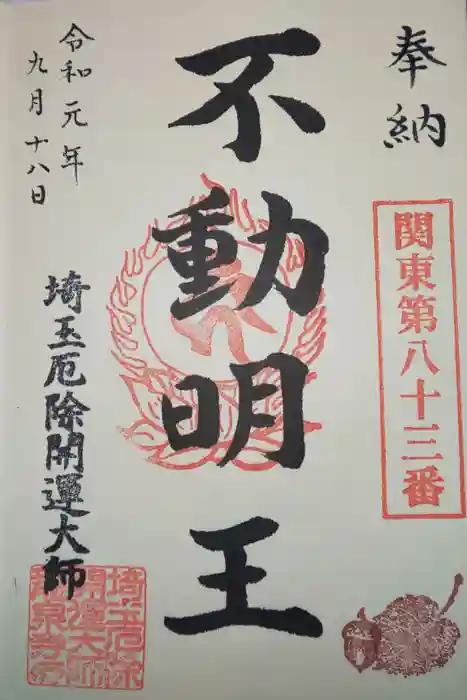 奉納
関東第八十三番
不動明王
令和元年
九月十八日
埼玉厄除開運大師
埼玉厄除
開運大師
龍泉寺